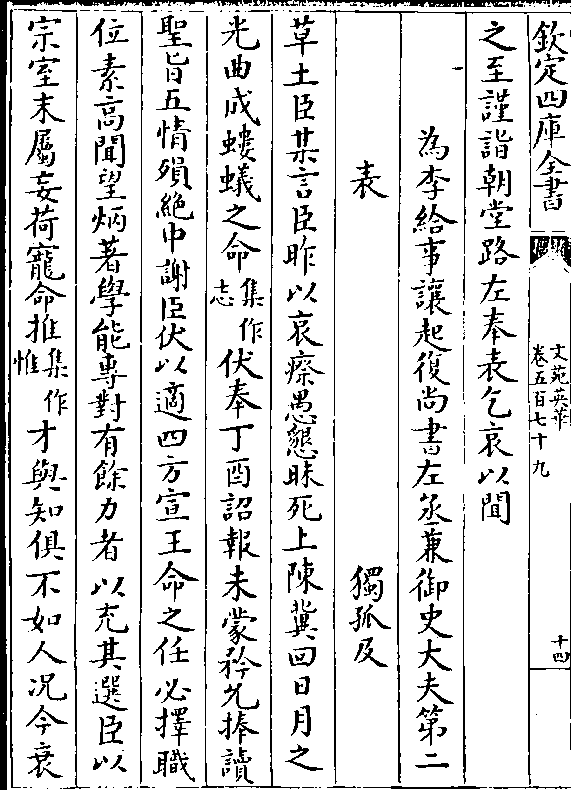 欽定四庫全書
文苑英華
卷五百七十九
十四
之至謹詣朝堂路左奉表乞哀以聞
為李給事讓起復尚書左丞兼御史大夫第二
表 獨孤及
草土臣某言臣昨以哀瘵愚懇昧死上陳冀回日月之
光曲成螻蟻之命集作志伏奉丁酉詔報未蒙矜允捧讀
聖旨五情殞絶中謝臣伏以適四方宣王命之任必擇職
位素高聞望炳著學能專對有餘力者以充其選臣以
宗室末屬妄荷寵命推集作惟才與知俱不如人况今衰